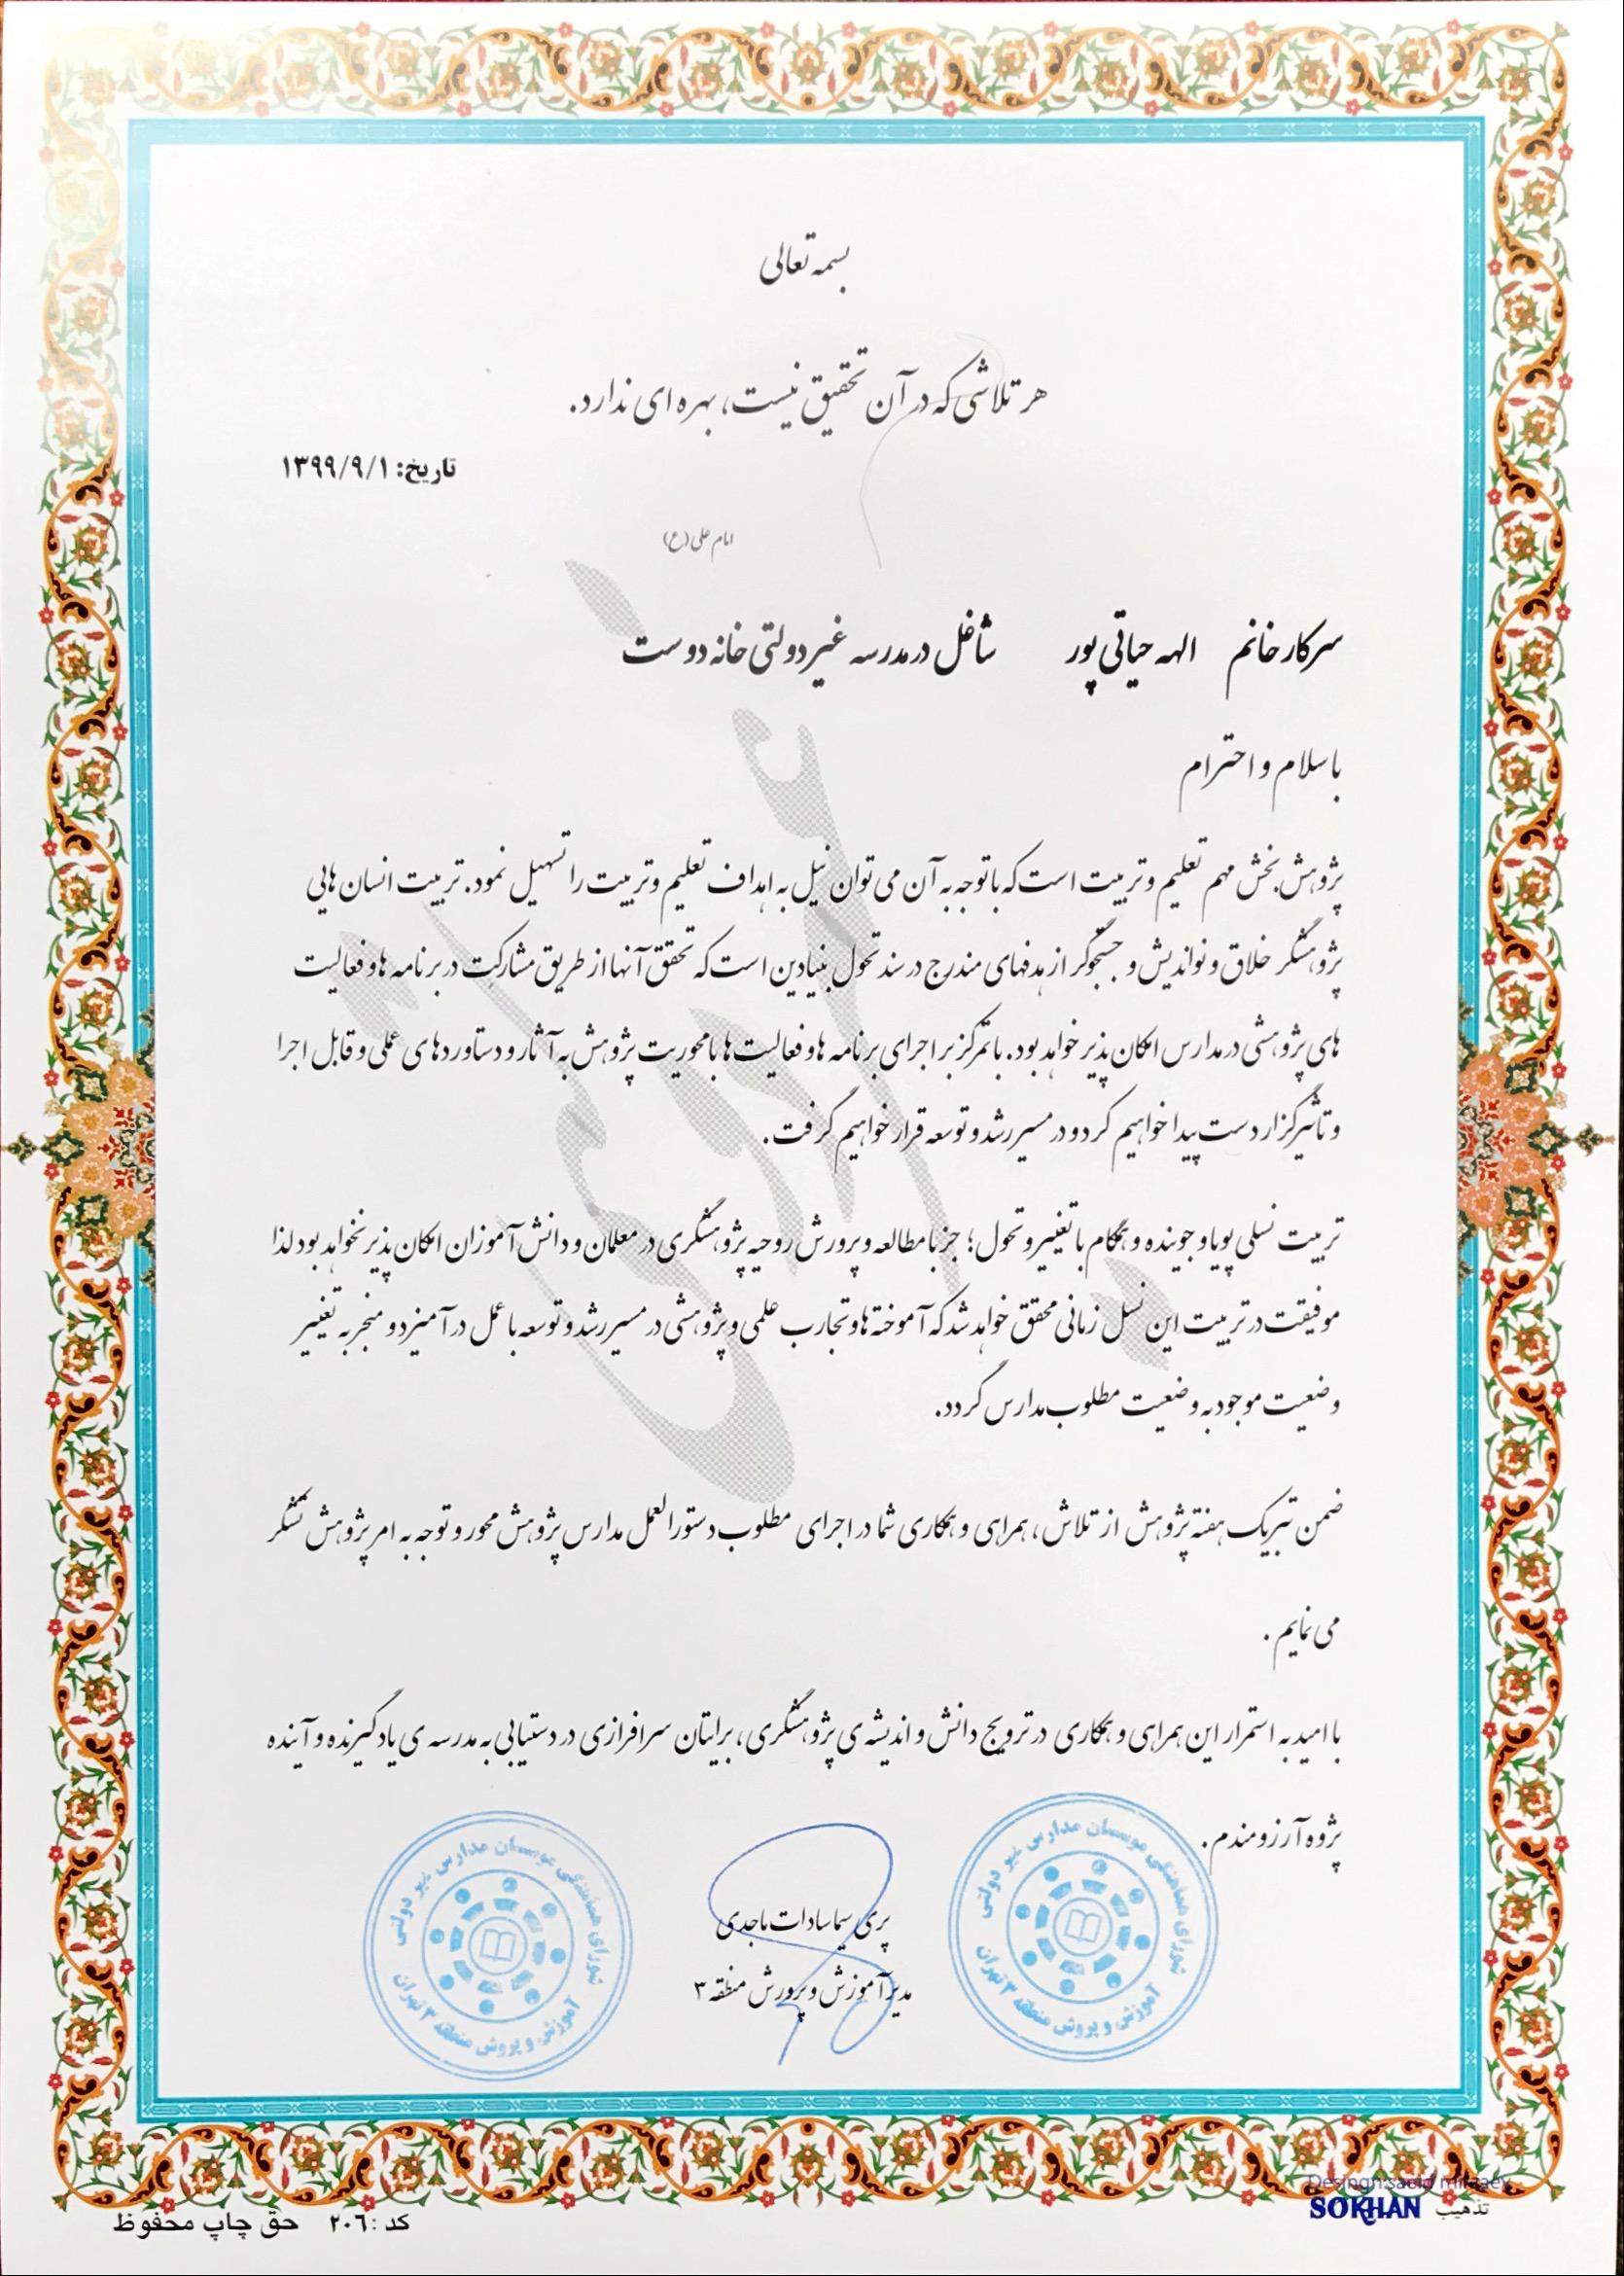 بسمه تعالی
هر تلاشی که در آن تحقیق نیست، بهره ای ندارد.
تاریخ: ۱۳۹۹/۹/۱
امام علی (ع)
سرکار خانم الهه حیاتی پور شاغل در مدرسه غیر دولتی خانه دوست
با سلام و احترام
پژوهش بخش مهم تعلیم و تربیت است که با توجه به آن می توان نیل به اهداف تعلیم و تربیت را تسهیل نمود. تربیت انسان هایی
پژوهشگر خلاق و نواندیش و جستجوگر از هدفهای مندرج در سند تحول بنیادین است که تحقق آنها از طریق مشارکت در برنامه ها و فعالیت
های پژوهشی در مدارس امکان پذیر خواهد بود. با تمرکز بر اجرای برنامه ها و فعالیت ها با محوریت پژوهش به آثار و دستاوردهای عملی و قابل اجرا
و تاثیرگزار دست پیدا خواهیم کرد و در مسیر رشد و توسعه قرار خواهیم گرفت.
تربیت نسلی پویا و جوینده و همگام با تغییر و تحول؛ جز با مطالعه و پرورش روحیه پژوهشگری در معلمان و دانش آموزان امکان پذیر نخواهد بود لذا
موفیقت در تربیت این نسل زمانی محقق خواهد شد که آموخته ها و تجارب علمی و پژوهشی در مسیر رشد و توسعه با عمل در آمیزد و منجر به تغییر
وضعیت موجود به وضعیت مطلوب مدارس گردد.
ضمن تبریک هفته پژوهش از تلاش، همراهی و همکاری شما در اجرای مطلوب دستورالعمل مدارس پژوهش محور و توجه به امر پژوهش تشکر
می نمایم.
با امید به استمرار این همراهی و همکاری در ترویج دانش و اندیشه ی پژوهشگری، برایتان سرافرازی در دستیابی به مدرسه ی یادگیرنده و آینده
پژوه آرزومندم.
پری سیما سادات ماجدی
مدیر آموزش و پرورش منطقه ۳
شورای هماهنگی موسسان مدارس غیر دولتی
آموزش و پرورش منطقه ۳ تهران
شورای هماهنگی موسسان مدارس غیر دولتی
آموزش و پرورش منطقه ۳ تهران
Desingn:saeid mirzaey
تذهیب SOKHAN
کد: ۲۰٦ حق چاپ محفوظ